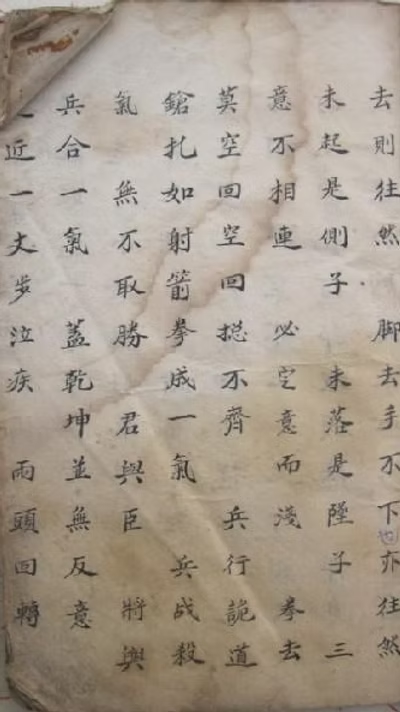 去則往然 脚去手不下也亦往然
未起是側子 未落是墜子 三
意不相連 必定意而淺 拳去
莫空回空回捴不齊 兵行詭道
鎗扎如射箭拳成一氣 兵战殺
氣 無不取勝 君與臣 將與
兵合一氣 蓋乾坤並無反意
近一丈步泣疾 兩頭回轉